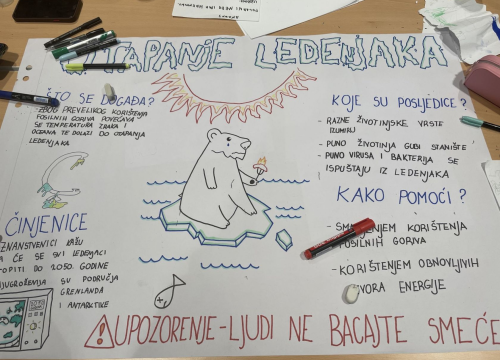 OTAPANJE LEDENJAKA
ŠTO SE DOGAĐA?
ZBOG PREVELIKOG KORIŠTENJA
FOSILNIH GORIVA POVEĆAVA
SE TEMPERATURA ZRAKA I
OCEANA TE DOLAZI DO OTAPANJA
LEDENJAKA
ČINJENICE
ZNANSTVENICI KAŽU
ĆE SE SVI LEDENJACI
OTOPITI DO 2050. GODINE
SU PODRUČJA
GRENLANDA
I ANTARKTIKE
KOJE SU POSLJEDICE?
- RAZNE ŽIVOTINJSKE VRSTE
IZUMIRU
- PUNO ŽIVOTINJA GUBI STANIŠTE
- PUNO VIRUSA I BAKTERIJA SE
ISPUŠTAJU IZ LEDENJAKA
KAKO POMOĆI?
- KORIŠTENJA
FOSILNIH GORIVA
- KORIŠTENJEM OBNOVLJIVIH
IZVORA ENERGIJE
UPOZORENJE-LJUDI NE BACAJTE SMEĆE